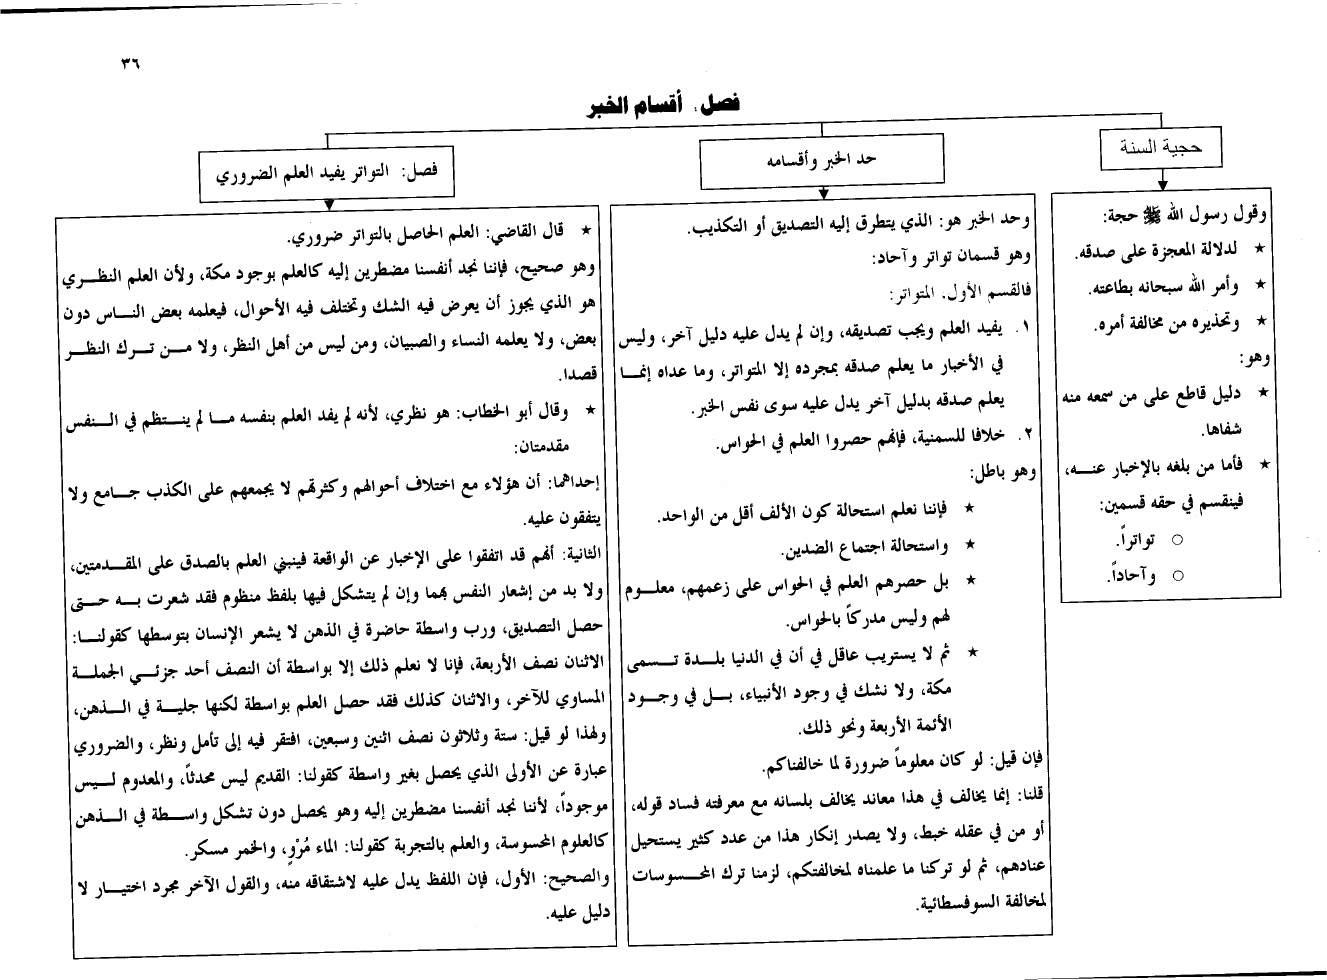 ٣٦
فصل: أقسام الخبر
حجية السنة
وقول رسول الله ﷺ حجة:
★ لدلالة المعجزة على صدقه.
★ وأمر الله سبحانه بطاعته.
★ وتحذيره من مخالفة أمره.
وهو:
★ دليل قاطع على من سمعه منه
شفاها.
★ فأما من بلغه بالإخبار عنه،
فينقسم في حقه قسمين:
○ تواتراً.
○ وآحاداً.
حد الخبر وأقسامه
وحد الخبر هو: الذي يتطرق إليه التصديق أو التكذيب.
وهو قسمان تواتر وآحاد:
فالقسم الأول. المتواتر:
١. يفيد العلم ويجب تصديقه، وإن لم يدل عليه دليل آخر، وليس
في الأخبار ما يعلم صدقه بمجرده إلا المتواتر، وما عداه إنما
يعلم صدقه بدليل آخر يدل عليه سوى نفس الخبر.
٢. خلافا للسمنية، فإنهم حصروا العلم في الحواس.
وهو باطل:
★ فإننا نعلم استحالة كون الألف أقل من الواحد.
★ واستحالة اجتماع الضدين.
★ بل حصرهم العلم في الحواس على زعمهم، معلوم
لهم وليس مدركاً بالحواس.
★ ثم لا يستريب عاقل في أن في الدنيا بلدة تسمى
مكة، ولا نشك في وجود الأنبياء، بل في وجود
الأئمة الأربعة ونحو ذلك.
فإن قيل: لو كان معلوماً ضرورة لما خالفناكم.
قلنا: إنما يخالف في هذا معاند يخالف بلسانه مع معرفته فساد قوله،
أو من في عقله خبط، ولا يصدر إنكار هذا من عدد كثير يستحيل
عنادهم، ثم لو تركنا ما علمناه لمخالفتكم، لزمنا ترك المحسوسات
لمخالفة السوفسطائية.
فصل: التواتر يفيد العلم الضروري
★ قال القاضي: العلم الحاصل بالتواتر ضروري.
وهو صحيح، فإننا نجد أنفسنا مضطرين إليه كالعلم بوجود مكة، ولأن العلم النظري
هو الذي يجوز أن يعرض فيه الشك وتختلف فيه الأحوال، فيعلمه بعض الناس دون
بعض، ولا يعلمه النساء والصبيان، ومن ليس من أهل النظر، ولا من ترك النظر
قصدا.
★ وقال أبو الخطاب: هو نظري، لأنه لم يفد العلم بنفسه ما لم ينتظم في النفس
مقدمتان:
إحداهما: أن هؤلاء مع اختلاف أحوالهم وكثرتهم لا يجمعهم على الكذب جامع ولا
يتفقون عليه.
الثانية: أنهم قد اتفقوا على الإخبار عن الواقعة فينبني العلم بالصدق على المقدمتين،
ولا بد من إشعار النفس بهما وإن لم يتشكل فيها بلفظ منظوم فقد شعرت به حتى
حصل التصديق، ورب واسطة حاضرة في الذهن لا يشعر الإنسان بتوسطها كقولنا:
الاثنان نصف الأربعة، فإنا لا نعلم ذلك إلا بواسطة أن النصف أحد جزئي الجملة
المساوي للآخر، والاثنان كذلك فقد حصل العلم بواسطة لكنها جلية في الذهن،
ولهذا لو قيل: ستة وثلاثون نصف اثنين وسبعين، افتقر فيه إلى تأمل ونظر، والضروري
عبارة عن الأولى الذي يحصل بغير واسطة كقولنا: القديم ليس محدثاً، والمعدوم ليس
موجوداً، لأننا نجد أنفسنا مضطرين إليه وهو يحصل دون تشكل واسطة في الذهن
كالعلوم المحسوسة، والعلم بالتجربة كقولنا: الماء مُرْوٍ، والخمر مسكر.
والصحيح: الأول، فإن اللفظ يدل عليه لاشتقاقه منه، والقول الآخر مجرد اختيار لا
دليل عليه.